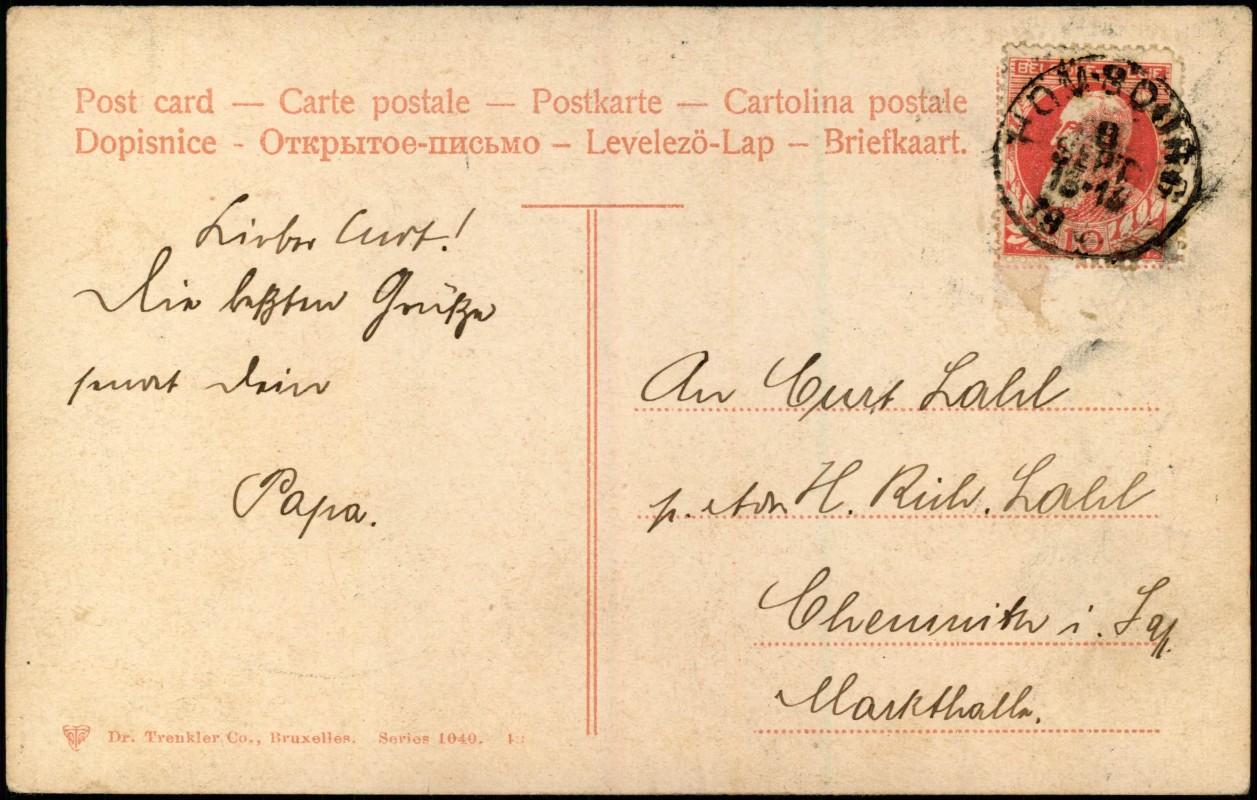 Post card — Carte postale — Postkarte — Cartolina postale
Dopisnice - Открытое-письмо – Levelezö-Lap – Briefkaart.
10
9
SEPT
19
Lieber Curt!
Die beßten Grüße
sendet Dein
Papa.
An Curt Lahl
H. Rich. Lahl
Chemnitz i. Sa.
Markthalle.
Dr. Trenkler Co., Bruxelles. Series 1040.